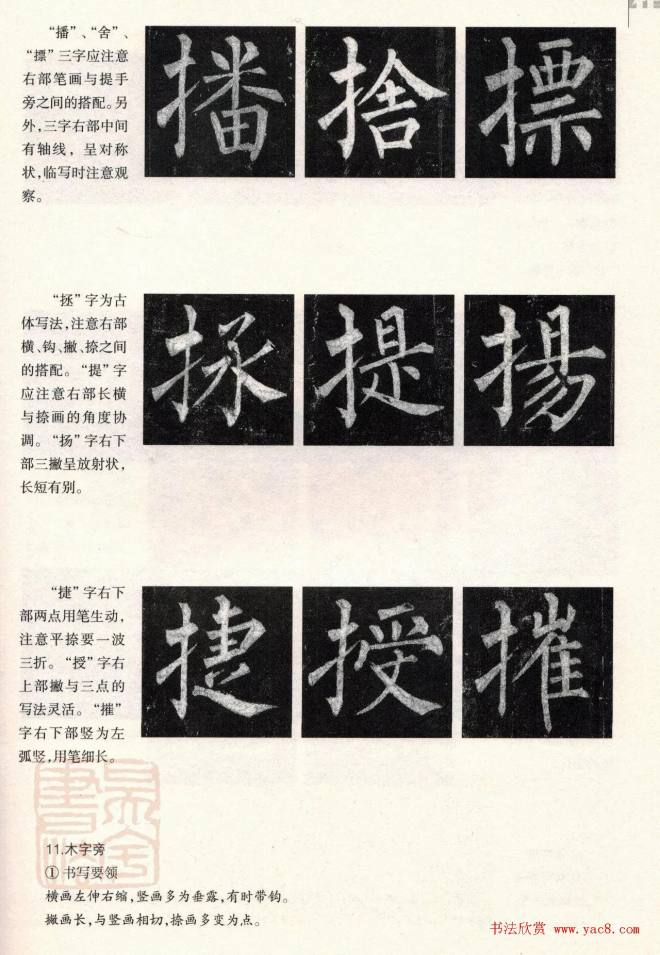 “播”、“舍”、
“摽”三字应注意
右部笔画与提手
旁之间的搭配。另
外,三字右部中间
有轴线，呈对称
状,临写时注意观
察。
播 捨 摽
“拯”字为古
体写法,注意右部
横、钩、撇、捺之间
的搭配。“提”字
应注意右部长横
与捺画的角度协
调。“扬”字右下
部三撇呈放射状,
长短有别。
拯 提 揚
“捷”字右下
部两点用笔生动,
注意平捺要一波
三折。“授”字右
上部撇与三点的
写法灵活。“摧”
字右下部竖为左
弧竖,用笔细长。
捷 授 摧
11.木字旁
①书写要领
横画左伸右缩,竖画多为垂露,有时带钩。
撇画长,与竖画相切,捺画多变为点。
书法欣赏 www.yac8.com